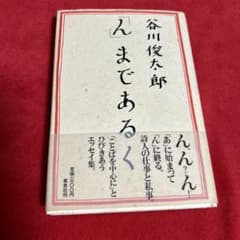 谷川俊太郎
「ん」まであるく
ん、ん、ん!
「あ」に始まって
「ん」に終る、
詩人の仕事と私事
「ことばを中心に」と
ひびきあう
エッセイ集。
草思社刊